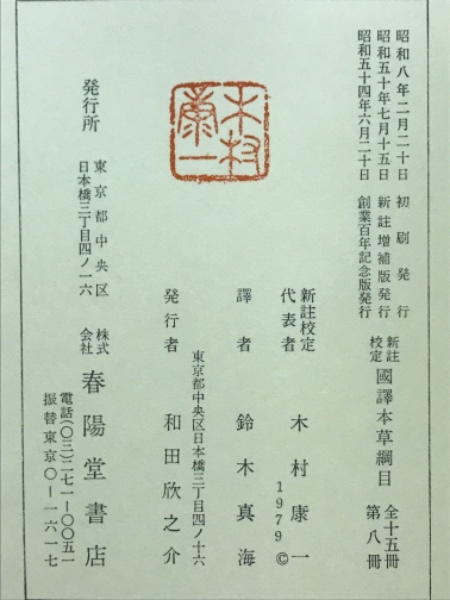 昭和八年二月二十日 初刷発行
昭和五十年七月十五日 新註増補版発行
昭和五十四年六月二十日 創業百年記念版発行
新註校定 國譯本草綱目 全十五冊 第八冊
新註校定代表者 木村康一
1979 ©
譯者 鈴木真海
東京都中央区日本橋三丁目四ノ十六
発行者 和田欣之介
木村康一
発行所 東京都中央区日本橋三丁目四ノ一六
株式会社 春陽堂書店
電話(〇三)二七一―〇〇五一
振替東京〇―一六一七